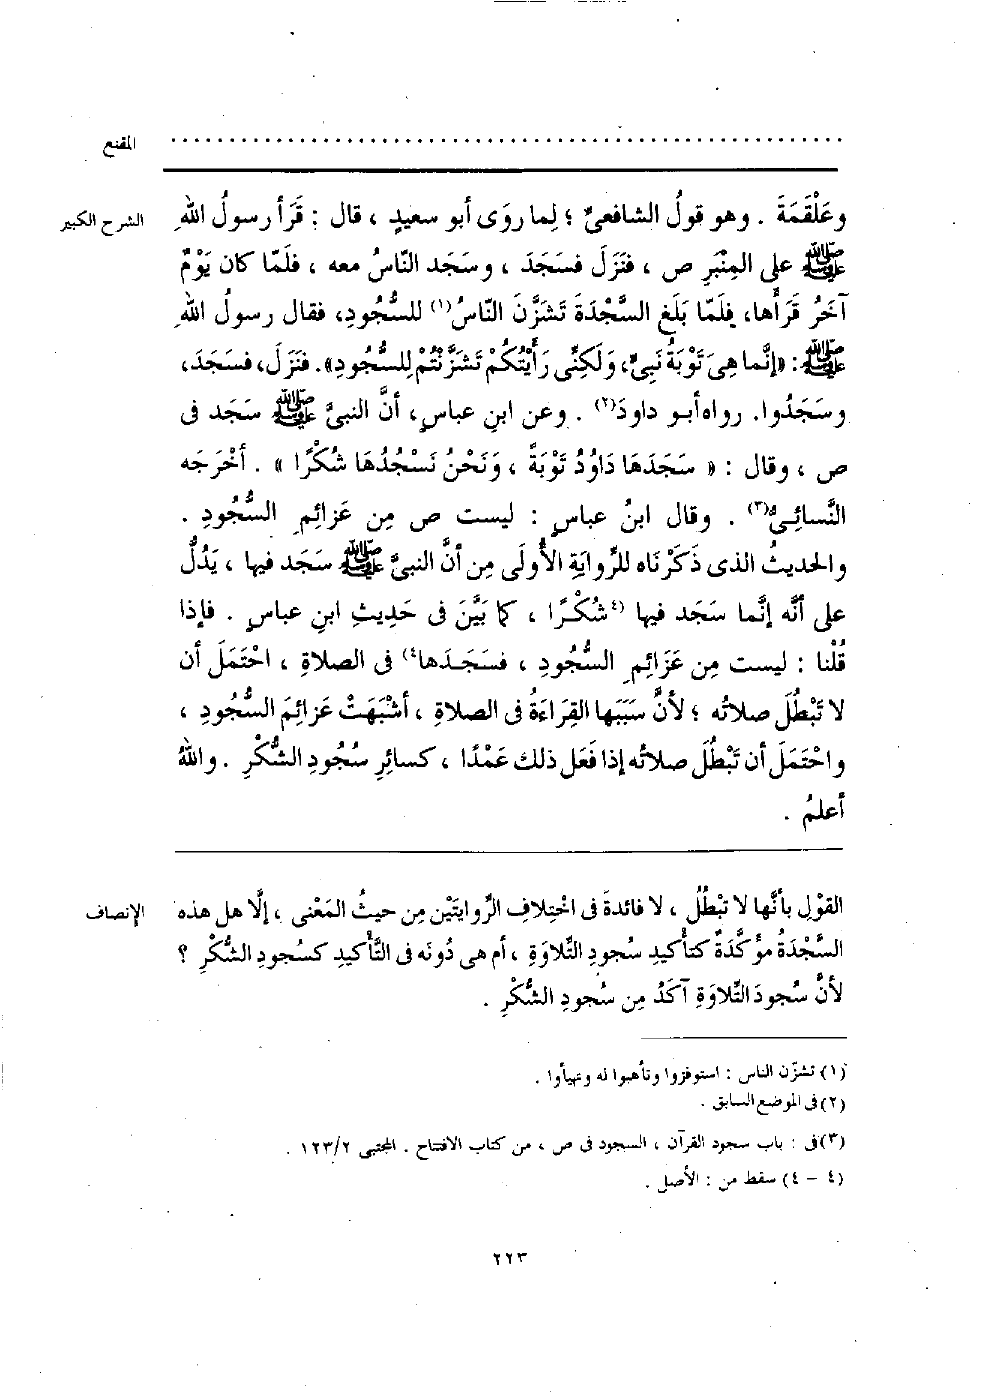 المقنع
الشرح الكبير
وعَلْقَمَةَ . وهو قولُ الشافعىِّ ؛ لِما روَى أبو سعيدٍ ، قال : قَرَأ رسولُ اللهِ
ﷺ على المِنْبَرِ ص ، فنَزَلَ فسَجَدَ ، وسَجَد النّاسُ معه ، فلَمّا كان يَوْمٌ
آخَرُ قَرَأَها، فلَمّا بَلَغ السَّجْدَةَ تَشَزَّنَ النّاسُ(١) للسُّجُودِ، فقال رسولُ اللهِ
ﷺ: «إنَّما هِىَ تَوْبَةُ نَبِىٍّ، وَلَكِنِّى رَأَيْتُكُمْ تَشَزَّنْتُمْ لِلسُّجُودِ». فنَزَلَ، فسَجَدَ،
وسَجَدُوا. رواه أبو داودَ(٢) . وعن ابنِ عباسٍ، أنَّ النبىَّ ﷺ سَجَد فى
ص ، وقال : « سَجَدَهَا دَاوُدُ تَوْبَةً ، وَنَحْنُ نَسْجُدُهَا شُكْرًا » . أخْرَجَه
النَّسائِىُّ(٣) . وقال ابنُ عباسٍ : ليست ص مِن عَزائِمِ السُّجُودِ .
والحديثُ الذى ذَكَرْنَاه للرِّوايَةِ الأُولَى مِن أنَّ النبىَّ ﷺ سَجَد فيها ، يَدُلُّ
على أنَّه إنَّما سَجَد فيها (٤شُكْرًا ، كما بَيَّنَ فى حَدِيثِ ابنِ عباسٍ . فإذا
قُلْنا : ليست مِن عَزائِمِ السُّجُودِ ، فسَجَدَها٤) فى الصلاةِ ، احْتَمَلَ أن
لا تَبْطُلَ صلاتُه ؛ لأنَّ سَبَبَها القِرَاءَةُ فى الصلاةِ ، أشْبَهَتْ عَزائِمَ السُّجُودِ ،
واحْتَمَلَ أن تَبْطُلَ صلاتُه إذا فَعَل ذلك عَمْدًا ، كسائِرِ سُجُودِ الشُّكْرِ . واللهُ
أعلمُ .
الإنصاف
القوْلِ بأنَّها لا تبْطُلُ ، لا فائدةَ فى اخْتِلافِ الرِّوايتَيْن مِن حيثُ المَعْنى ، إلَّا هل هذه
السَّجْدَةُ مؤَكَّدَةٌ كتأْكيدِ سجودِ التِّلاوَةِ ، أم هى دُونَه فى التَّأْكيدِ كسُجودِ الشُّكْرِ ؟
لأنَّ سُجودَ التِّلاوَةِ آكَدُ مِن سُجودِ الشُّكْرِ .
(١) تشزّن الناس : استوفزوا وتأهبوا له وتهيأوا .
(٢) فى الموضع السابق .
(٣) فى : باب سجود القرآن ، السجود فى ص ، من كتاب الافتتاح . المجتبى ١٢٣/٢ .
(٤ - ٤) سقط من : الأصل .
٢٢٣